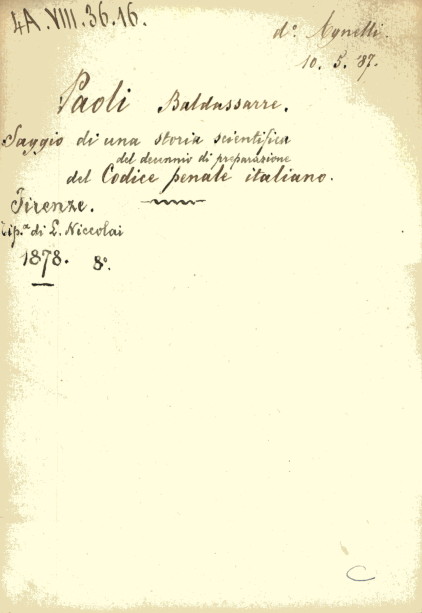 4A.VIII.36.16.
d.° Agnelli.
10. 5. '37.
Paoli Baldassarre.
Saggio di una storia scientifica
del decennio di preparazione
del Codice penale italiano.
Firenze.
Tip.ª di L. Niccolai
1878. 8°.
C